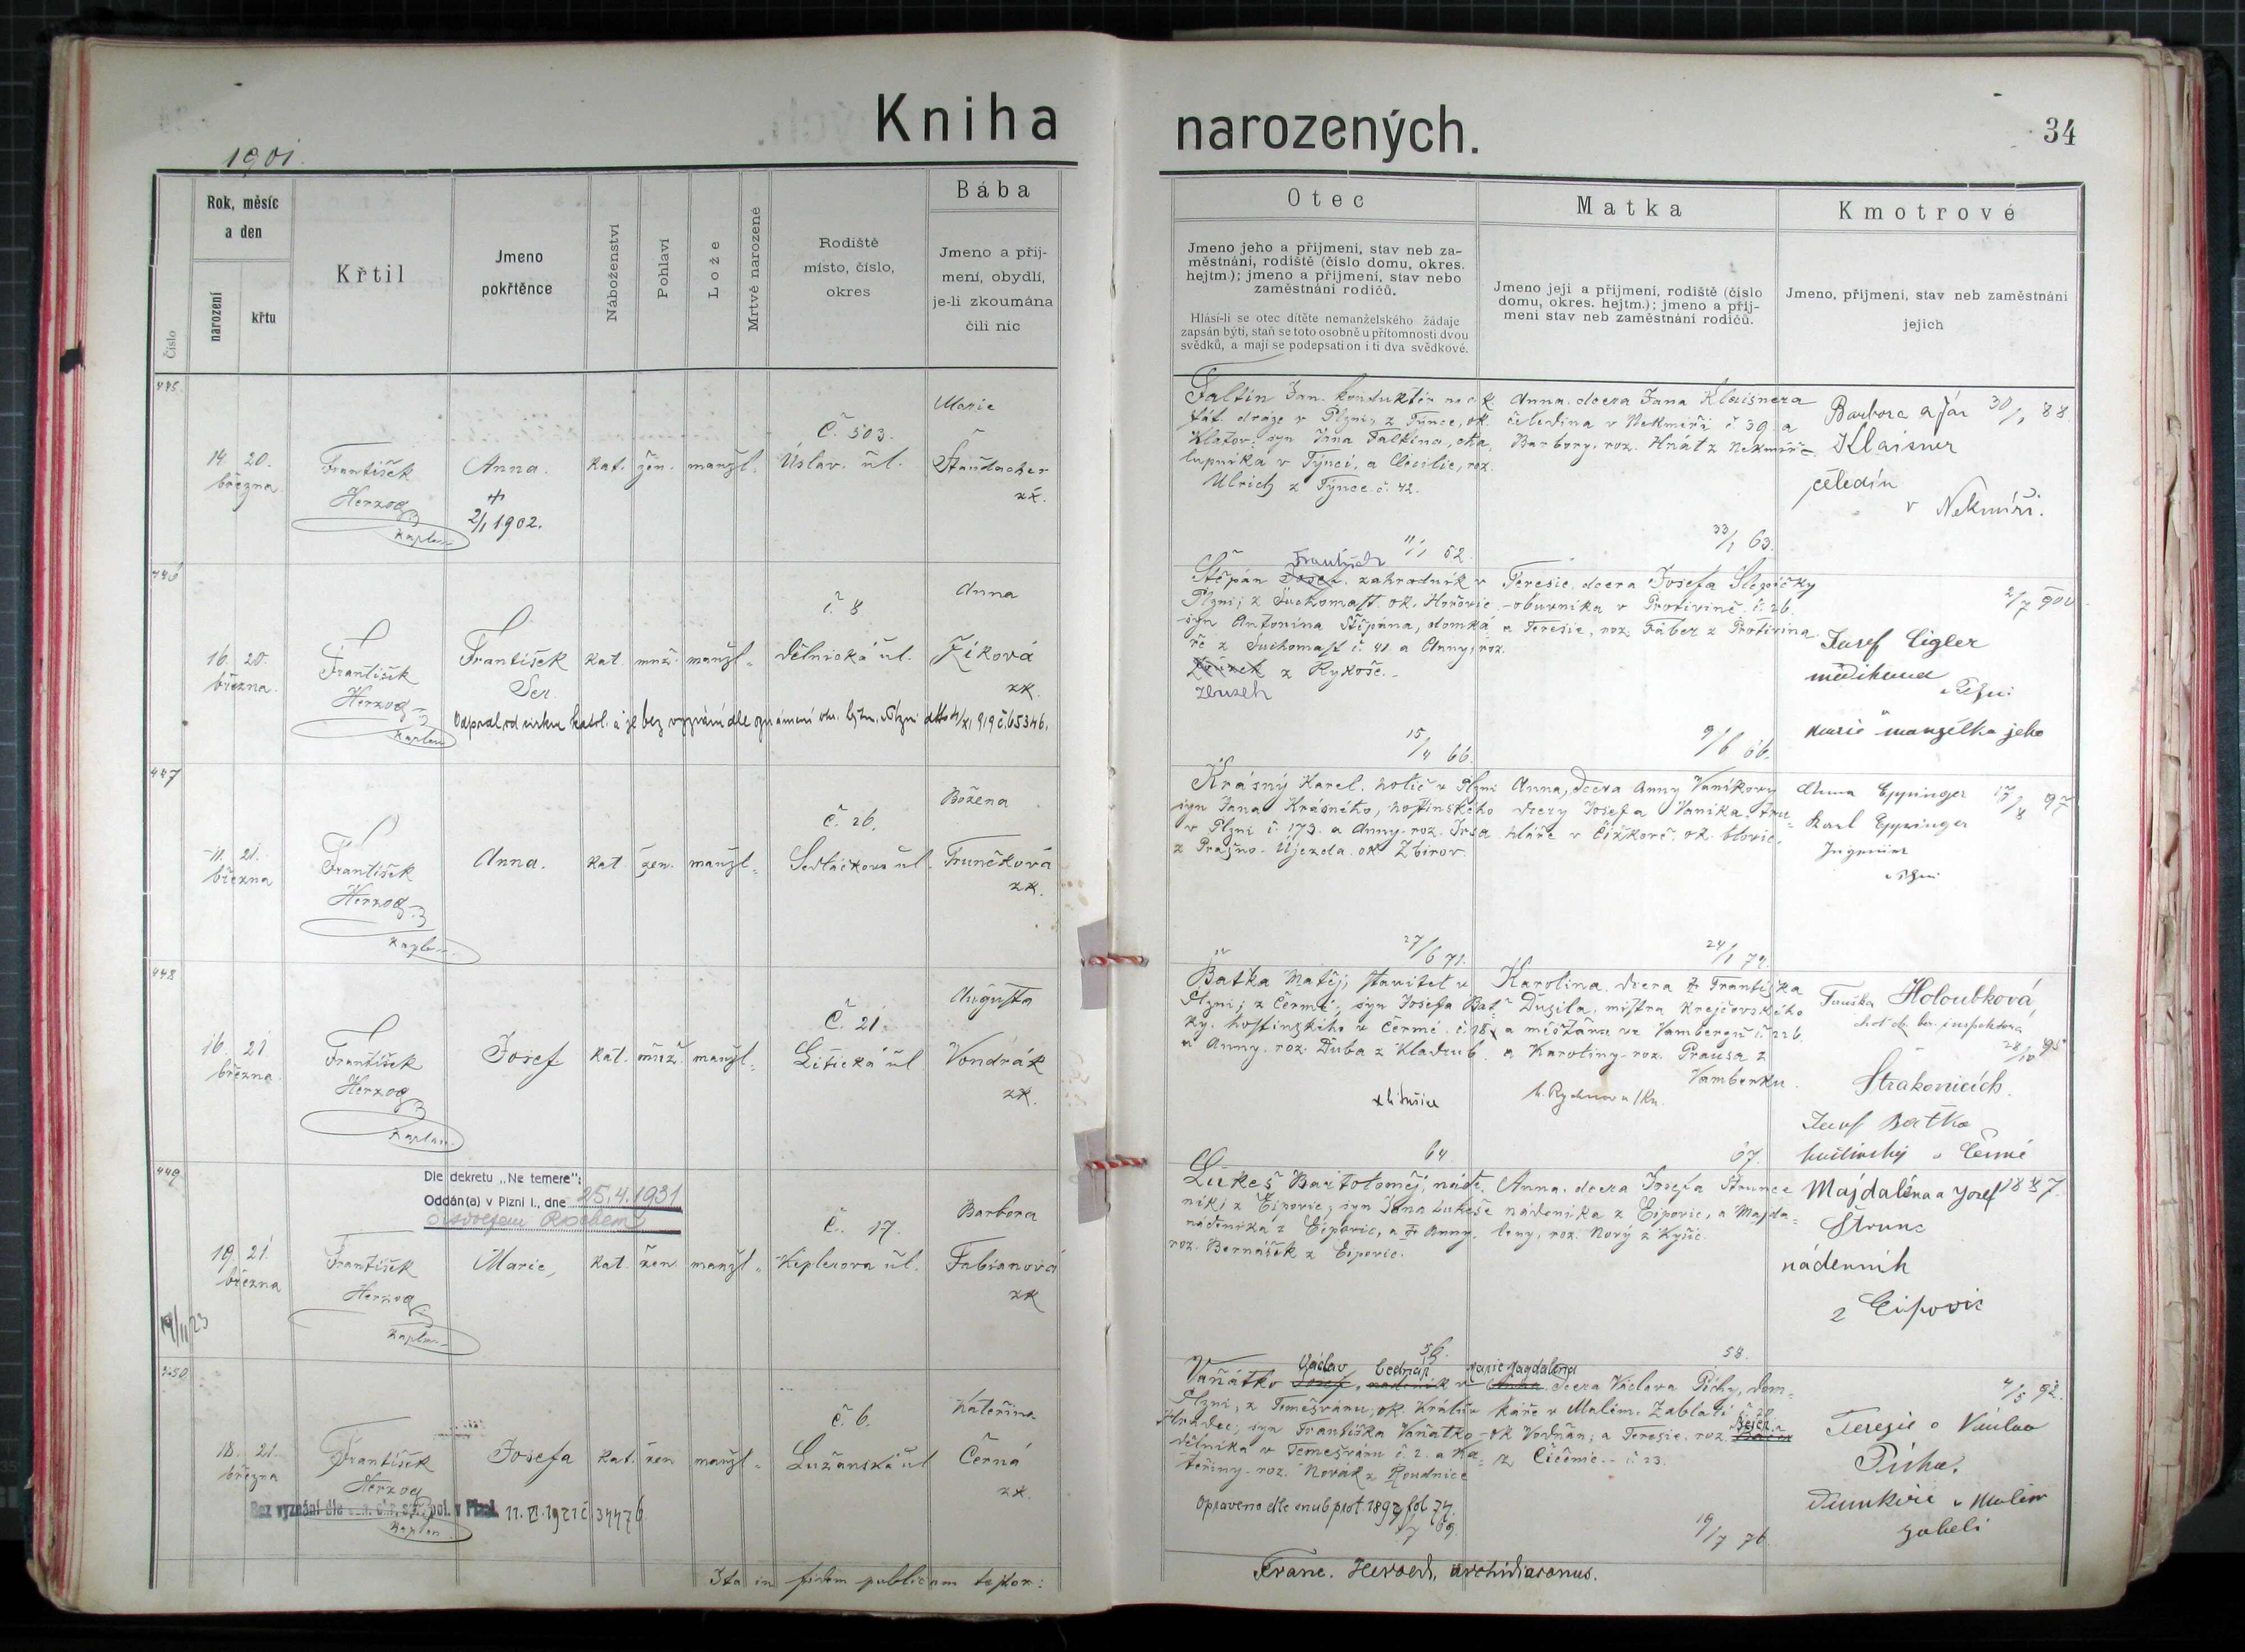 Kniha narozených.
34
1901.
Číslo
Rok, měsíc
a den
narození
křtu
Křtil
Jmeno
pokřtěnce
Náboženství
Pohlaví
Lože
Mrtvě narozené
Rodiště
místo, číslo,
okres
Bába
Jmeno a příj-
mení, obydlí,
je-li zkoumána
čili nic
Otec
Jmeno jeho a příjmení, stav neb za-
městnání, rodiště (číslo domu, okres.
hejtm.); jmeno a příjmení, stav nebo
zaměstnání rodičů.
Hlásí-li se otec dítěte nemanželského žádaje
zapsán býti, staň se toto osobně u přítomnosti dvou
svědků, a mají se podepsati on i ti dva svědkové.
Matka
Jmeno její a příjmení, rodiště (číslo
domu, okres. hejtm.); jmeno a příj-
mení stav neb zaměstnání rodičů.
Kmotrové
Jmeno, příjmení, stav neb zaměstnání
jejich
445
14. 20.
března.
František
Herzog
kaplan
Anna.
+
2/1 1902.
kat. žen. manžl.
Č. 503.
Úslav. ul.
Marie
Štaudacher
zk.
Faltin Jan. konduktér na c. k.
stát. dráze v Plzni, z Týnce, ok.
Klatov. syn Jana Faltina, cha-
lupníka v Týnci, a Cecilie, roz.
Ulrich z Týnce č. 42.
11/1 52.
Anna. dcera Jana Klaisnera
čeledína v Nekmíři č 39. a
Barbory. roz. Hnát z Nekmíře.
33/1 63.
Barbora a Jan 30/1 88
Klaisner
čeledín
v Nekmíři.
446
16. 20.
března.
František
Herzog
kaplan
František
Ser.
kat. muž. manžl.
č. 8
Dělnická ul.
Anna
Zíková
zk.
Odpadl od církve katol. a je bez vyznání dle oznámení okr. hejtm. v Plzni
František
Štěpán Josef. zahradník v
Plzni; z Suchomast. ok. Hořovic
syn Antonína Štěpána, domká-
ře z Suchomast č. 41 a Anny, roz.
z Rykoše.
Zbuzek
15/4 66.
Teresie. dcera Josefa Slepičky
obuvníka v Protivíně. č. 26.
a Teresie, roz. Fáber z Protivína.
9/6 66.
2/7 900
Josef Cigler
v Plzni
Marie manželka jeho
447
11. 21.
března
František
Herzog
kaplan
Anna.
kat. žen. manžl.
č. 26.
Sedláčkova ul.
Božena
Trunčková
zk.
Krásný Karel. holič v Plzni
syn Jana Krásného, hostinského
v Plzni č. 173. a Anny. roz. Irsa
z Prašno-Újezda. ok Zbirov.
27/6 71.
Anna, dcera Anny Vaníkovy
dcery Josefa Vaníka. tru-
hláře v Čížkově. ok. blovic.
24/1 74.
Anna Eppinger 17/8 97
Karl Eppinger
Ingenieur
448
16. 21.
března.
František
Herzog
kaplan.
Josef
kat. muž. manžl.
Č. 21.
Litická ul
Augusta
Vondrák
zk.
Baťka Matěj, stavitel v
Plzni; z Čermé, syn Josefa Bať-
ky. hostinského v Čermé. č. 18
a Anny. roz. Duba z Kladrub.
64.
Karolina. dcera Františka
Dusila, mistra krejčovského
a měšťana ve Vamberku č. 226.
a Karoliny. roz. Prausa z
Vamberku.
67.
Holoubková
28/10 95
Strakonicích.
Josef Baťka
hostinský v Čermé
449
Dle dekretu „Ne temere“:
Oddán(a) v Plzni I., dne 25.4.1931
19. 21.
března
19/11 23
František
Herzog
kaplan
Marie,
kat. žen. manžl.
Č. 17.
Keplerova ul.
Barbora
Fabianová
zk
Lukeš Bartoloměj, náde-
ník, z Ejpovic, syn Jana Lukeše
nádeníka z Ejpovic, a Anny.
roz. Bernášek z Ejpovic.
56.
Anna. dcera Josefa Štrunce
nádeníka z Ejpovic, a Majda-
leny, roz. Nový z Kyšic.
58.
Majdaléna a Josef 1887.
Štrunc
nádenník
z Eipovic
450
18. 21.
března
František
Herzog
kaplan
Bez vyznání dle v Plzni. 11. VI. 1921 č. 34476
Josefa
kat. žen manžl.
č. 6.
Lužanská ul
Kateřina
Černá
zk.
Václav bednář
Vaňátko Josef, nádeník v
Plzni, z Temešváru, ok. Králův
Hradec; syn Františka Vaňátko
dělníka v Temešváru č. 2. a Ka-
teřiny. roz. Novák z Roudnice
Opraveno dle snub. prot. 1897 fol 74.
Marie Magdalena
Anna. dcera Václava Píchy, dom-
káře v Malém. Záblatí č 20.
ok Vodňan; a Teresie. roz.
z Číčenic. č 23.
19/7 76
4/5 92.
Teresie a Václav
Pícha.
Ita in fidem publicam testor:
Franc. Herold, archidiaconus.